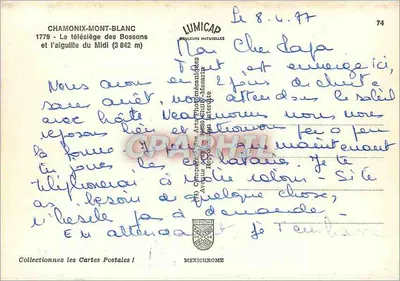 CHAMONIX-MONT-BLANC
1779 - Le télésiège des Bossons
et l'aiguille du Midi (3 842 m)
LUMICAP
COULEURS NATURELLES
74
Le 8.4.77
Mon Cher Papa
Tout est enneigé ici,
Nous avons eu 2 jours de chute
sans arrêt, nous attendons le soleil
avec hâte. Néanmoins nous nous
reposons bien et retrouvons peu à peu
la forme. J'espère que maintenant
tu joues les Je te
téléphonerai à notre retour - Si tu
as besoin de quelque chose,
n'hésite pas à demander -
En attendant je t'embrasse
CPARAMA
Collectionnez les Cartes Postales !
MEXICHROME